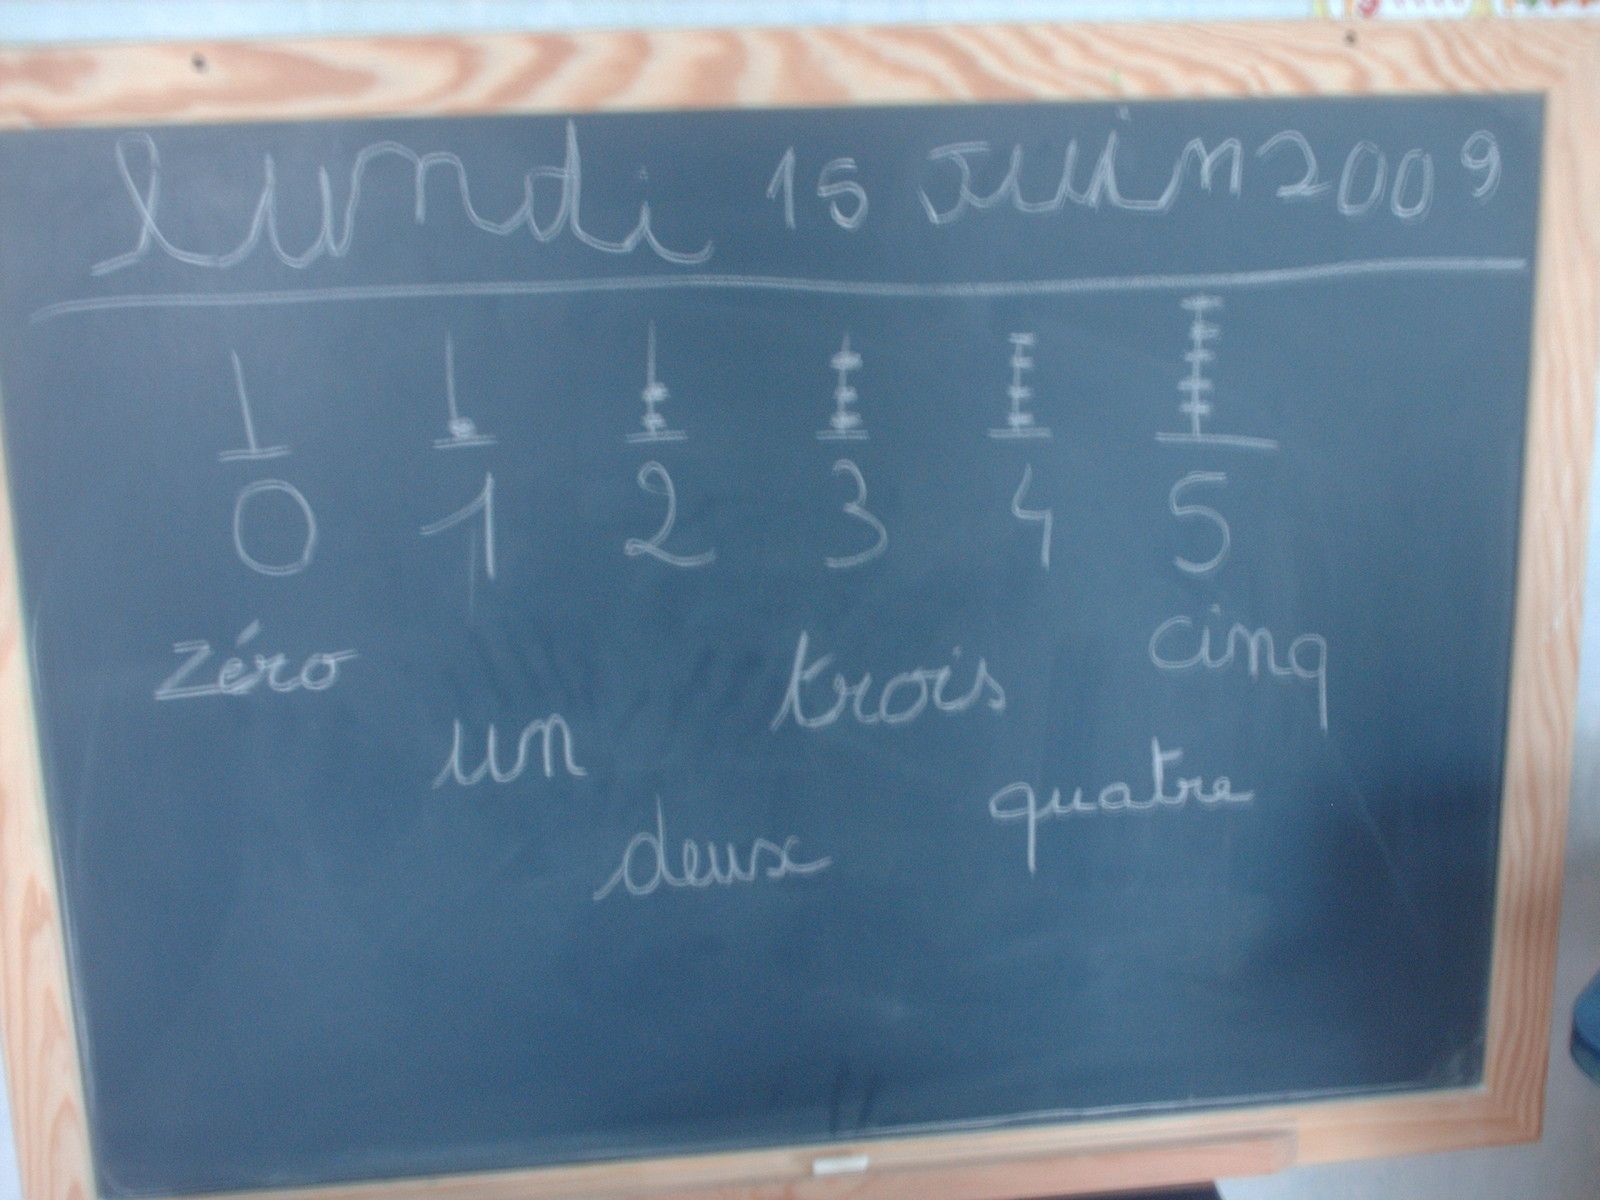 lundi 15 juin 2009
0 1 2 3 4 5
zéro un deux trois quatre cinq